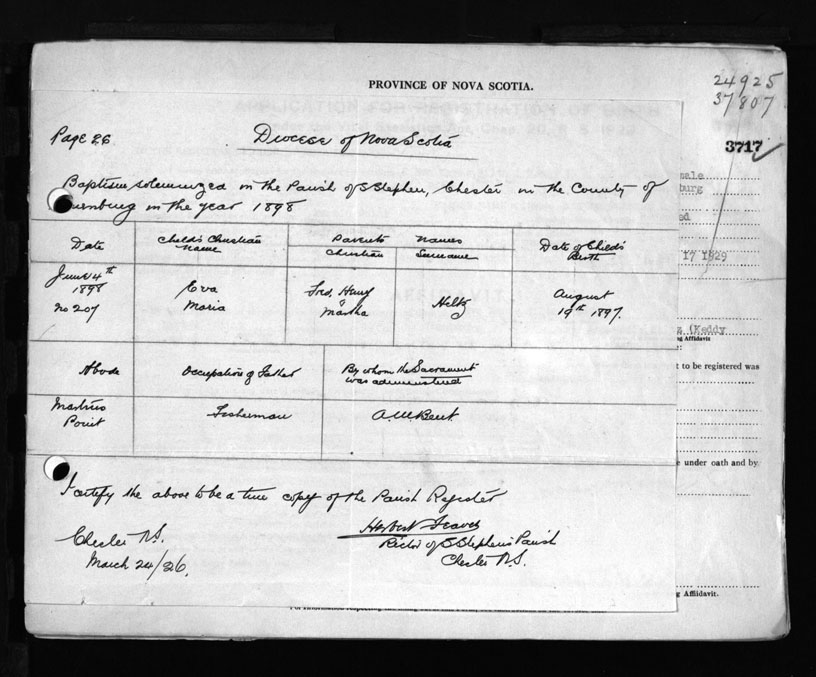 PROVINCE OF NOVA SCOTIA.
24925
37807
3717
Page 26
Diocese of Nova Scotia
Baptism solemnized in the Parish of S Stephen, Chester in the County of
urnburg in the year 1898
male
burg
ed
17 1829
Date
Child's Christian Name
Parents Names
Christian
Surname
Date of Child's Birth
June 14th
1898
No 207
Eva
Maria
Henry
&
Martha
August
19th 1897.
(Keddy
g Affidavit
Abode
Occupation of Father
By whom the Sacrament
was administered
t to be registered was
Martins
Point
Fisherman
A. W. Bent.
e under oath and by
I certify the above to be a true copy of the Parish Register
Chester N.S.
March 24/26.
Herbert
Rector of S Stephen's Parish
Chester N.S.
g Affidavit.